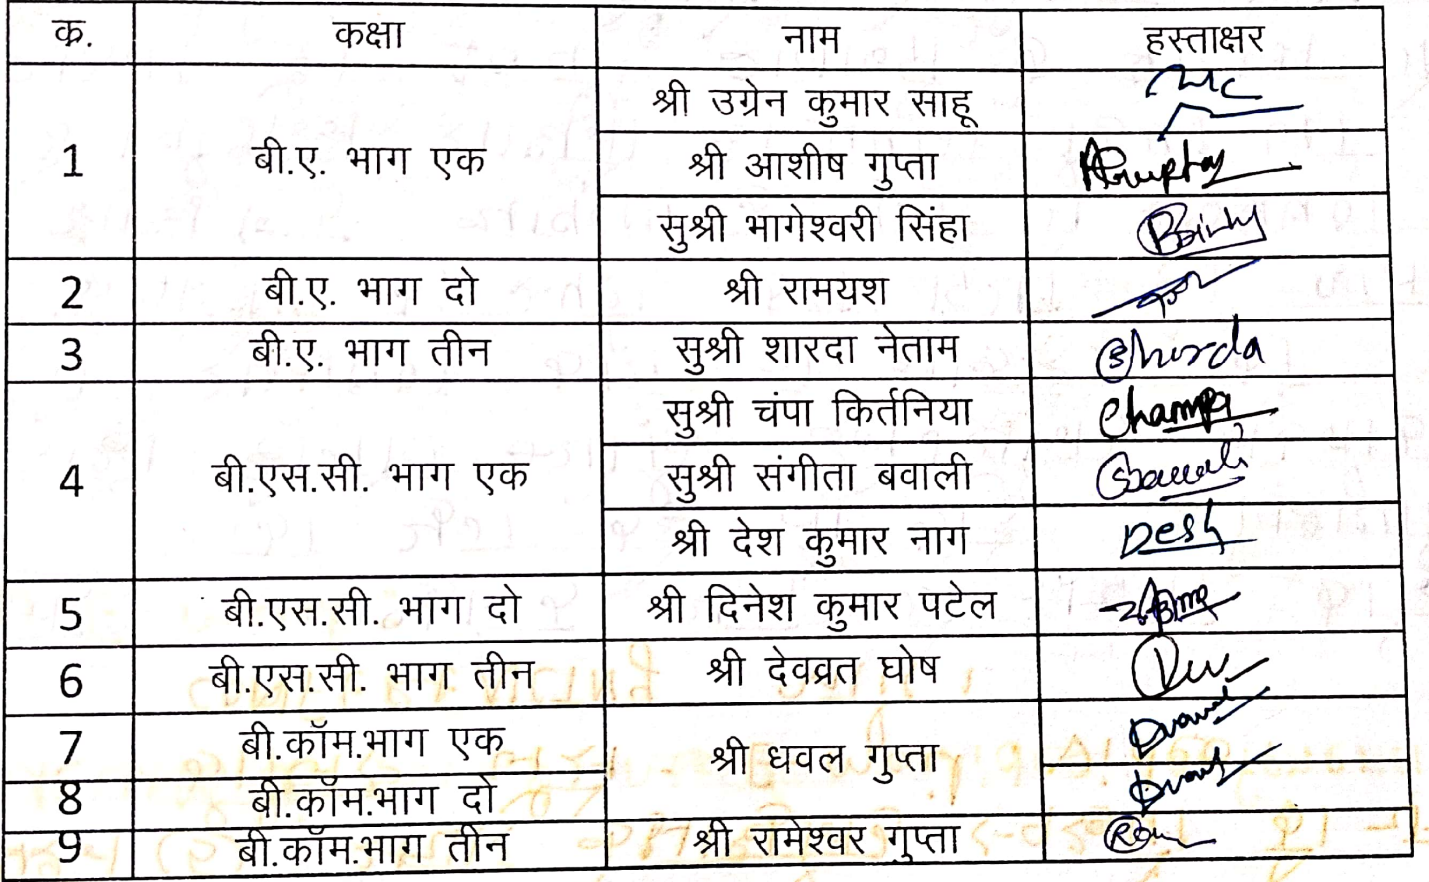 क. कक्षा नाम हस्ताक्षर
श्री उग्रेन कुमार साहू
1 बी.ए. भाग एक श्री आशीष गुप्ता
सुश्री भागेश्वरी सिंहा
2 बी.ए. भाग दो श्री रामयश
3 बी.ए. भाग तीन सुश्री शारदा नेताम Sharda
सुश्री चंपा किर्तनिया Champa
4 बी.एस.सी. भाग एक सुश्री संगीता बवाली
श्री देश कुमार नाग Desh
5 बी.एस.सी. भाग दो श्री दिनेश कुमार पटेल
6 बी.एस.सी. भाग तीन श्री देवव्रत घोष
7 बी.कॉम.भाग एक
श्री धवल गुप्ता
8 बी.कॉम.भाग दो
9 बी.कॉम.भाग तीन श्री रामेश्वर गुप्ता